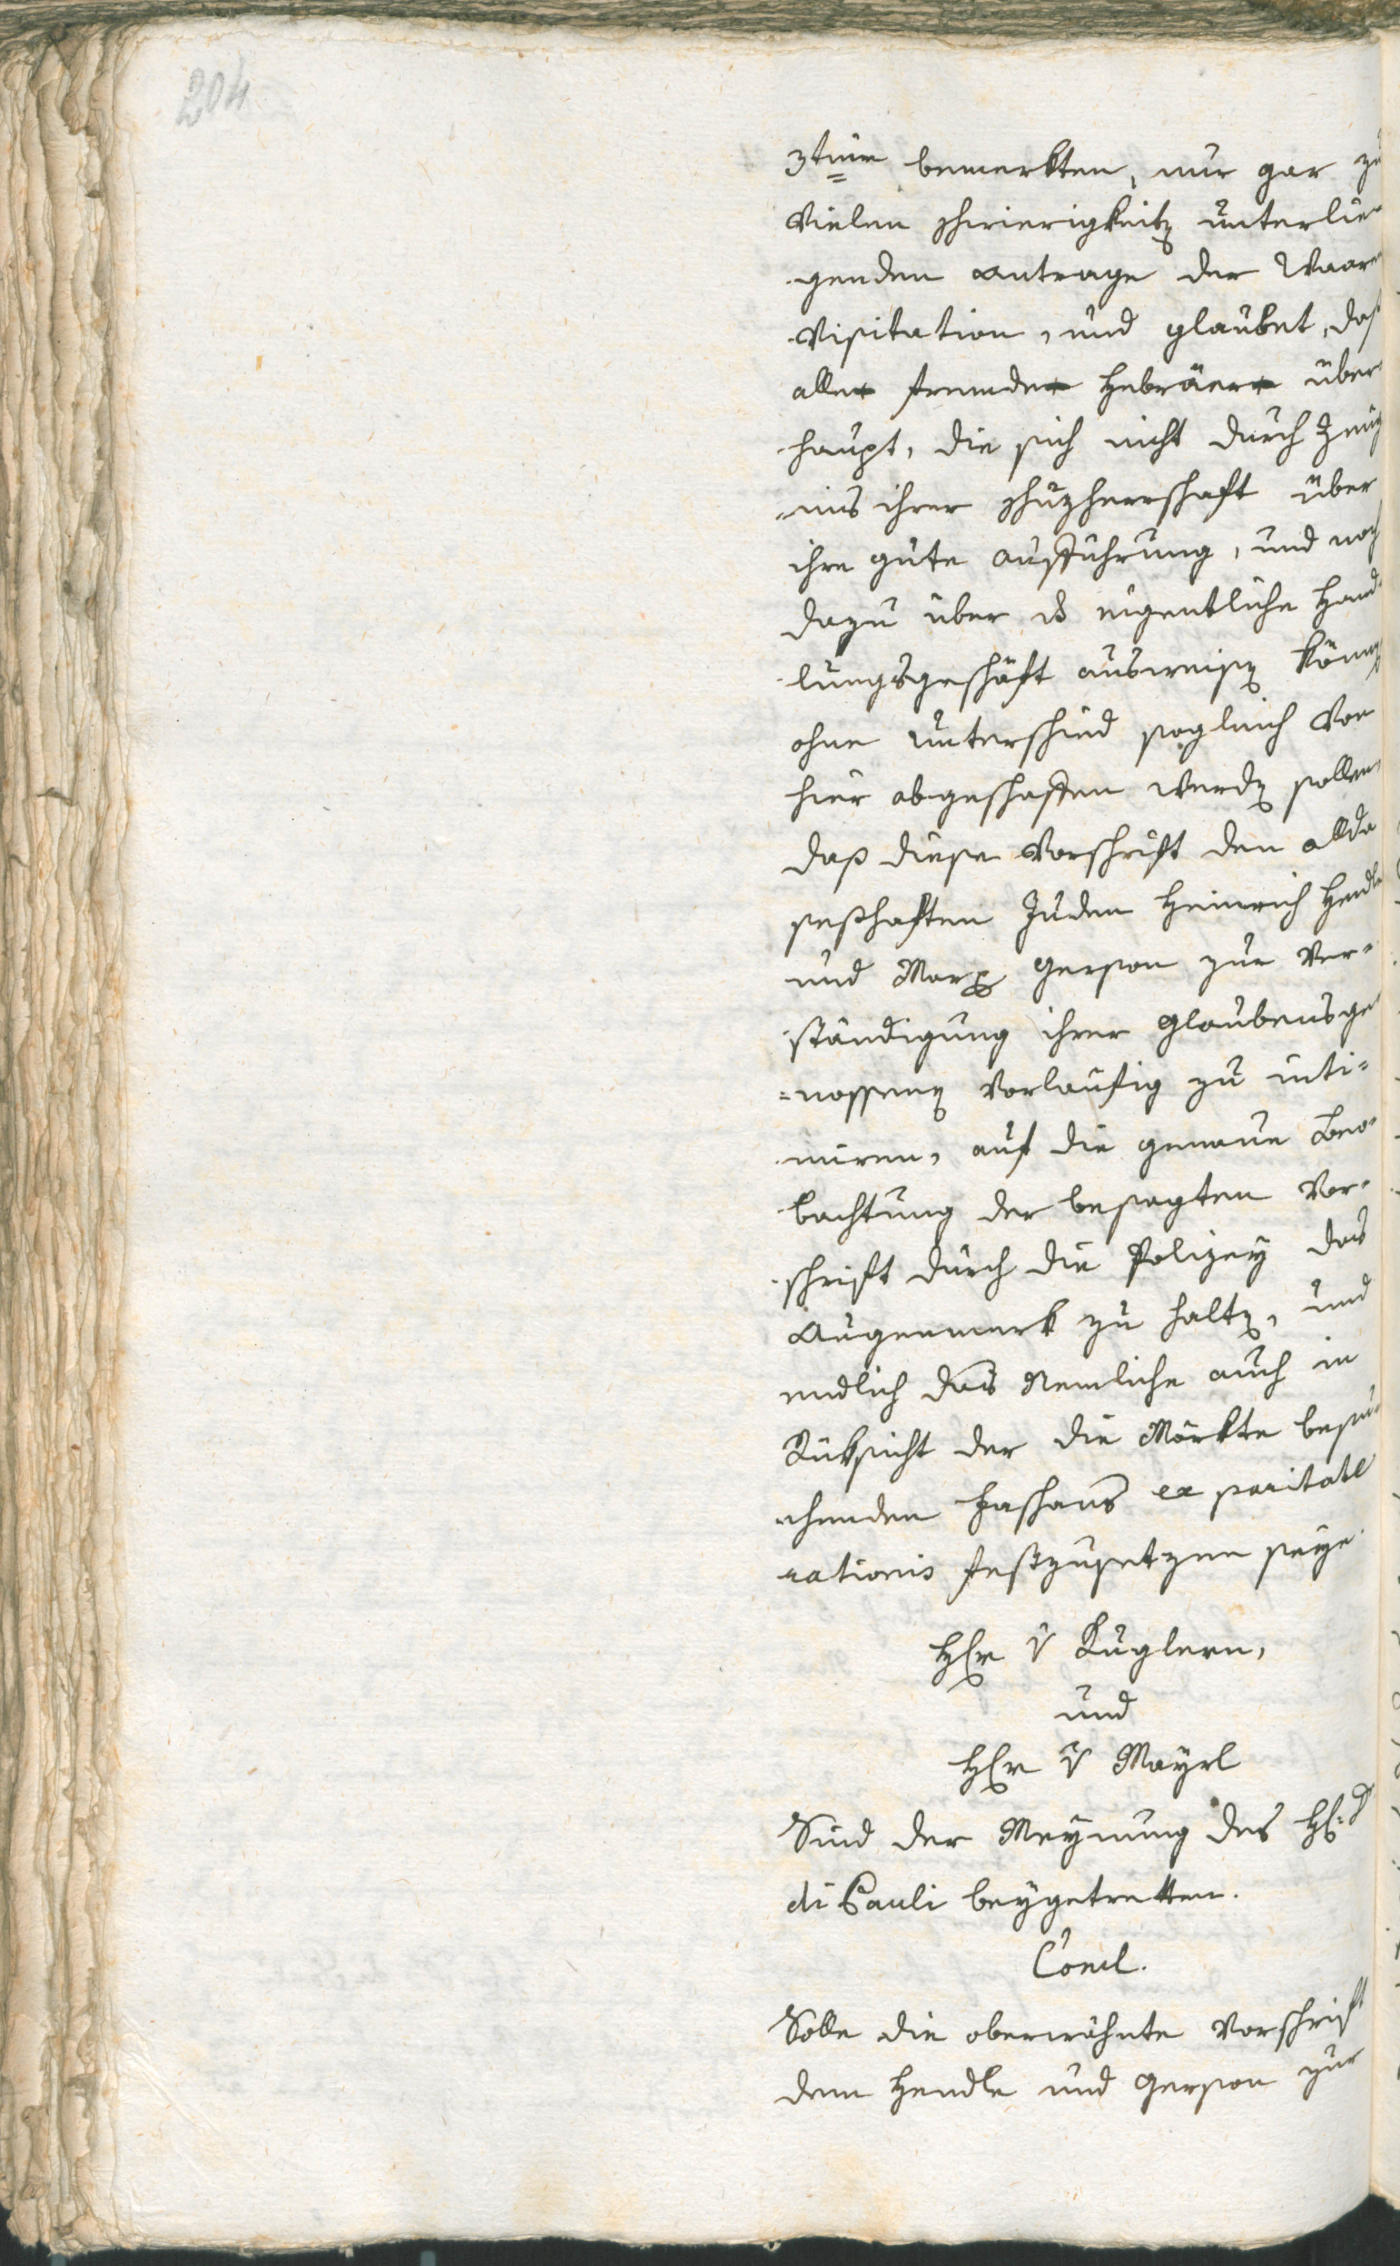 204
3tium bemerkten, nur gar zu
vielen Schwierigkeiten unterlie-
genden Antrage der Waaren
Visitation, und glaubet, daß
alle fremde Hebräer über-
haupt, die sich nicht durch Zeug-
nis ihrer Schuzherrschaft über
ihre gute Aufführung, und noch
dazu über das eigentliche Hand-
lungsgeschäft ausweisen können
ohne Unterschied sogleich von
hier abgeschaffen werden sollen,
daß diese Vorschrift den allda
seßhaften Juden Heinrich Hendle
und Marx Gerson zur Ver-
ständigung ihrer Glaubensge-
=nossenen vorläufig zu inti=
miren, auf die genaue Beo-
bachtung der besagten Vor-
schrift durch die Polizey das
Augenmerk zu halten, und
endlich das Nemliche auch in
Rüksicht der die Märkte besu-
chenden Haschaus ex paritate
rationis festzusetzen seye.
Herr v Kuglern,
und
Herr v Mayrl
Sind der Meynung des H: v
di Pauli beygetretten.
Concl.
Solle die oberwähnte Vorschrift
dem Hendle und Gerson zur